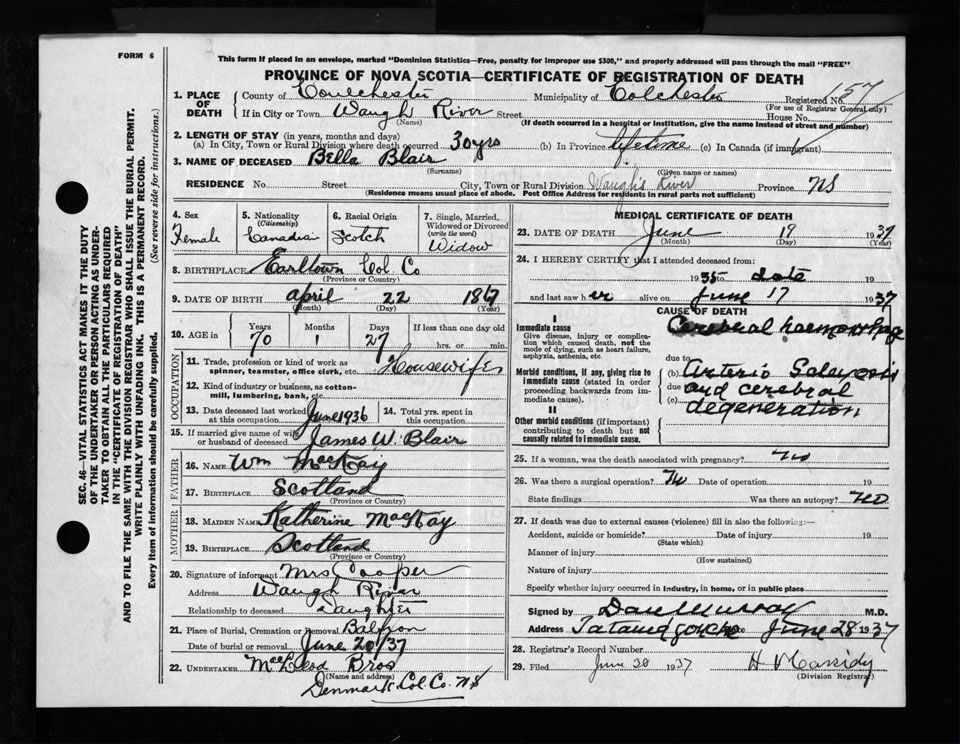 FORM 6
This form if placed in an envelope, marked "Dominion Statistics—Free, penalty for improper use $300," and properly addressed will pass through the mail "FREE"
PROVINCE OF NOVA SCOTIA—CERTIFICATE OF REGISTRATION OF DEATH
1. PLACE OF DEATH
County of Coulchester Municipality of Colchester Registered No. 157
(For use of Registrar General only)
If in City or Town Waugh River Street House No.
(Name) (If death occurred in a hospital or institution, give the name instead of street and number)
2. LENGTH OF STAY (in years, months and days)
(a) In City, Town or Rural Division where death occurred 30yrs (b) In Province lifetime (c) In Canada (if immigrant)
3. NAME OF DECEASED Bella Blair
(Surname) (Given name or names)
RESIDENCE No. Street City, Town or Rural Division Waugh's River Province NS
(Residence means usual place of abode. Post Office Address for residents in rural parts not sufficient)
4. Sex
Female
5. Nationality
(Citizenship)
Canadian
6. Racial Origin
Scotch
7. Single, Married, Widowed or Divorced
(write the word)
Widow
8. BIRTHPLACE Earltown Col Co
(Province or Country)
9. DATE OF BIRTH april 22 1867
(Month) (Day) (Year)
10. AGE in Years Months Days If less than one day old
70 1 27 hrs. or min.
OCCUPATION
11. Trade, profession or kind of work as spinner, teamster, office clerk, etc. Housewife
12. Kind of industry or business, as cotton-mill, lumbering, bank, etc.
13. Date deceased last worked at this occupation June 1936
14. Total yrs. spent in this occupation
15. If married give name of wife or husband of deceased James W. Blair
FATHER
16. NAME Wm MacKay
17. BIRTHPLACE Scotland
(Province or Country)
MOTHER
18. MAIDEN NAME Katherine MacKay
19. BIRTHPLACE Scotland
(Province or Country)
20. Signature of informant Mrs Cooper
Address Waugh River
Relationship to deceased Daughter
21. Place of Burial, Cremation or Removal Balfron
Date of burial or removal June 20/37
22. UNDERTAKER McLeod Bros
(Name and address)
Denmark Col. Co. NS
MEDICAL CERTIFICATE OF DEATH
23. DATE OF DEATH June 19 1937
(Month) (Day) (Year)
24. I HEREBY CERTIFY that I attended deceased from:
1935 to date 19
and last saw her alive on June 17 1937
CAUSE OF DEATH
I
Immediate cause
Give disease, injury or complication which caused death, not the mode of dying, such as heart failure, asphyxia, asthenia, etc.
Cerebral haemorrhage
due to
Morbid conditions, if any, giving rise to immediate cause (stated in order proceeding backwards from immediate cause).
(b) Arterio Sclerosis
due and cerebral
(c) degeneration
II
Other morbid conditions (if important) contributing to death but not causally related to immediate cause.
25. If a woman, was the death associated with pregnancy? no
26. Was there a surgical operation? No Date of operation 19
State findings Was there an autopsy? no
27. If death was due to external causes (violence) fill in also the following:
Accident, suicide or homicide? Date of injury 19
(State which)
Manner of injury
(How sustained)
Nature of injury
Specify whether injury occurred in industry, in home, or in public place
Signed by Dan Murray M.D.
Address Tatamagouche Date June 28 1937
28. Registrar's Record Number
29. Filed June 30 1937 H Cassidy
(Division Registrar)
SEC. 46—VITAL STATISTICS ACT MAKES IT THE DUTY OF THE UNDERTAKER OR PERSON ACTING AS UNDERTAKER TO OBTAIN ALL THE PARTICULARS REQUIRED IN THE "CERTIFICATE OF REGISTRATION OF DEATH" AND TO FILE THE SAME WITH THE DIVISION REGISTRAR WHO SHALL ISSUE THE BURIAL PERMIT.
WRITE PLAINLY WITH UNFADING INK. THIS IS A PERMANENT RECORD.
Every item of information should be carefully supplied. (See reverse side for instructions.)